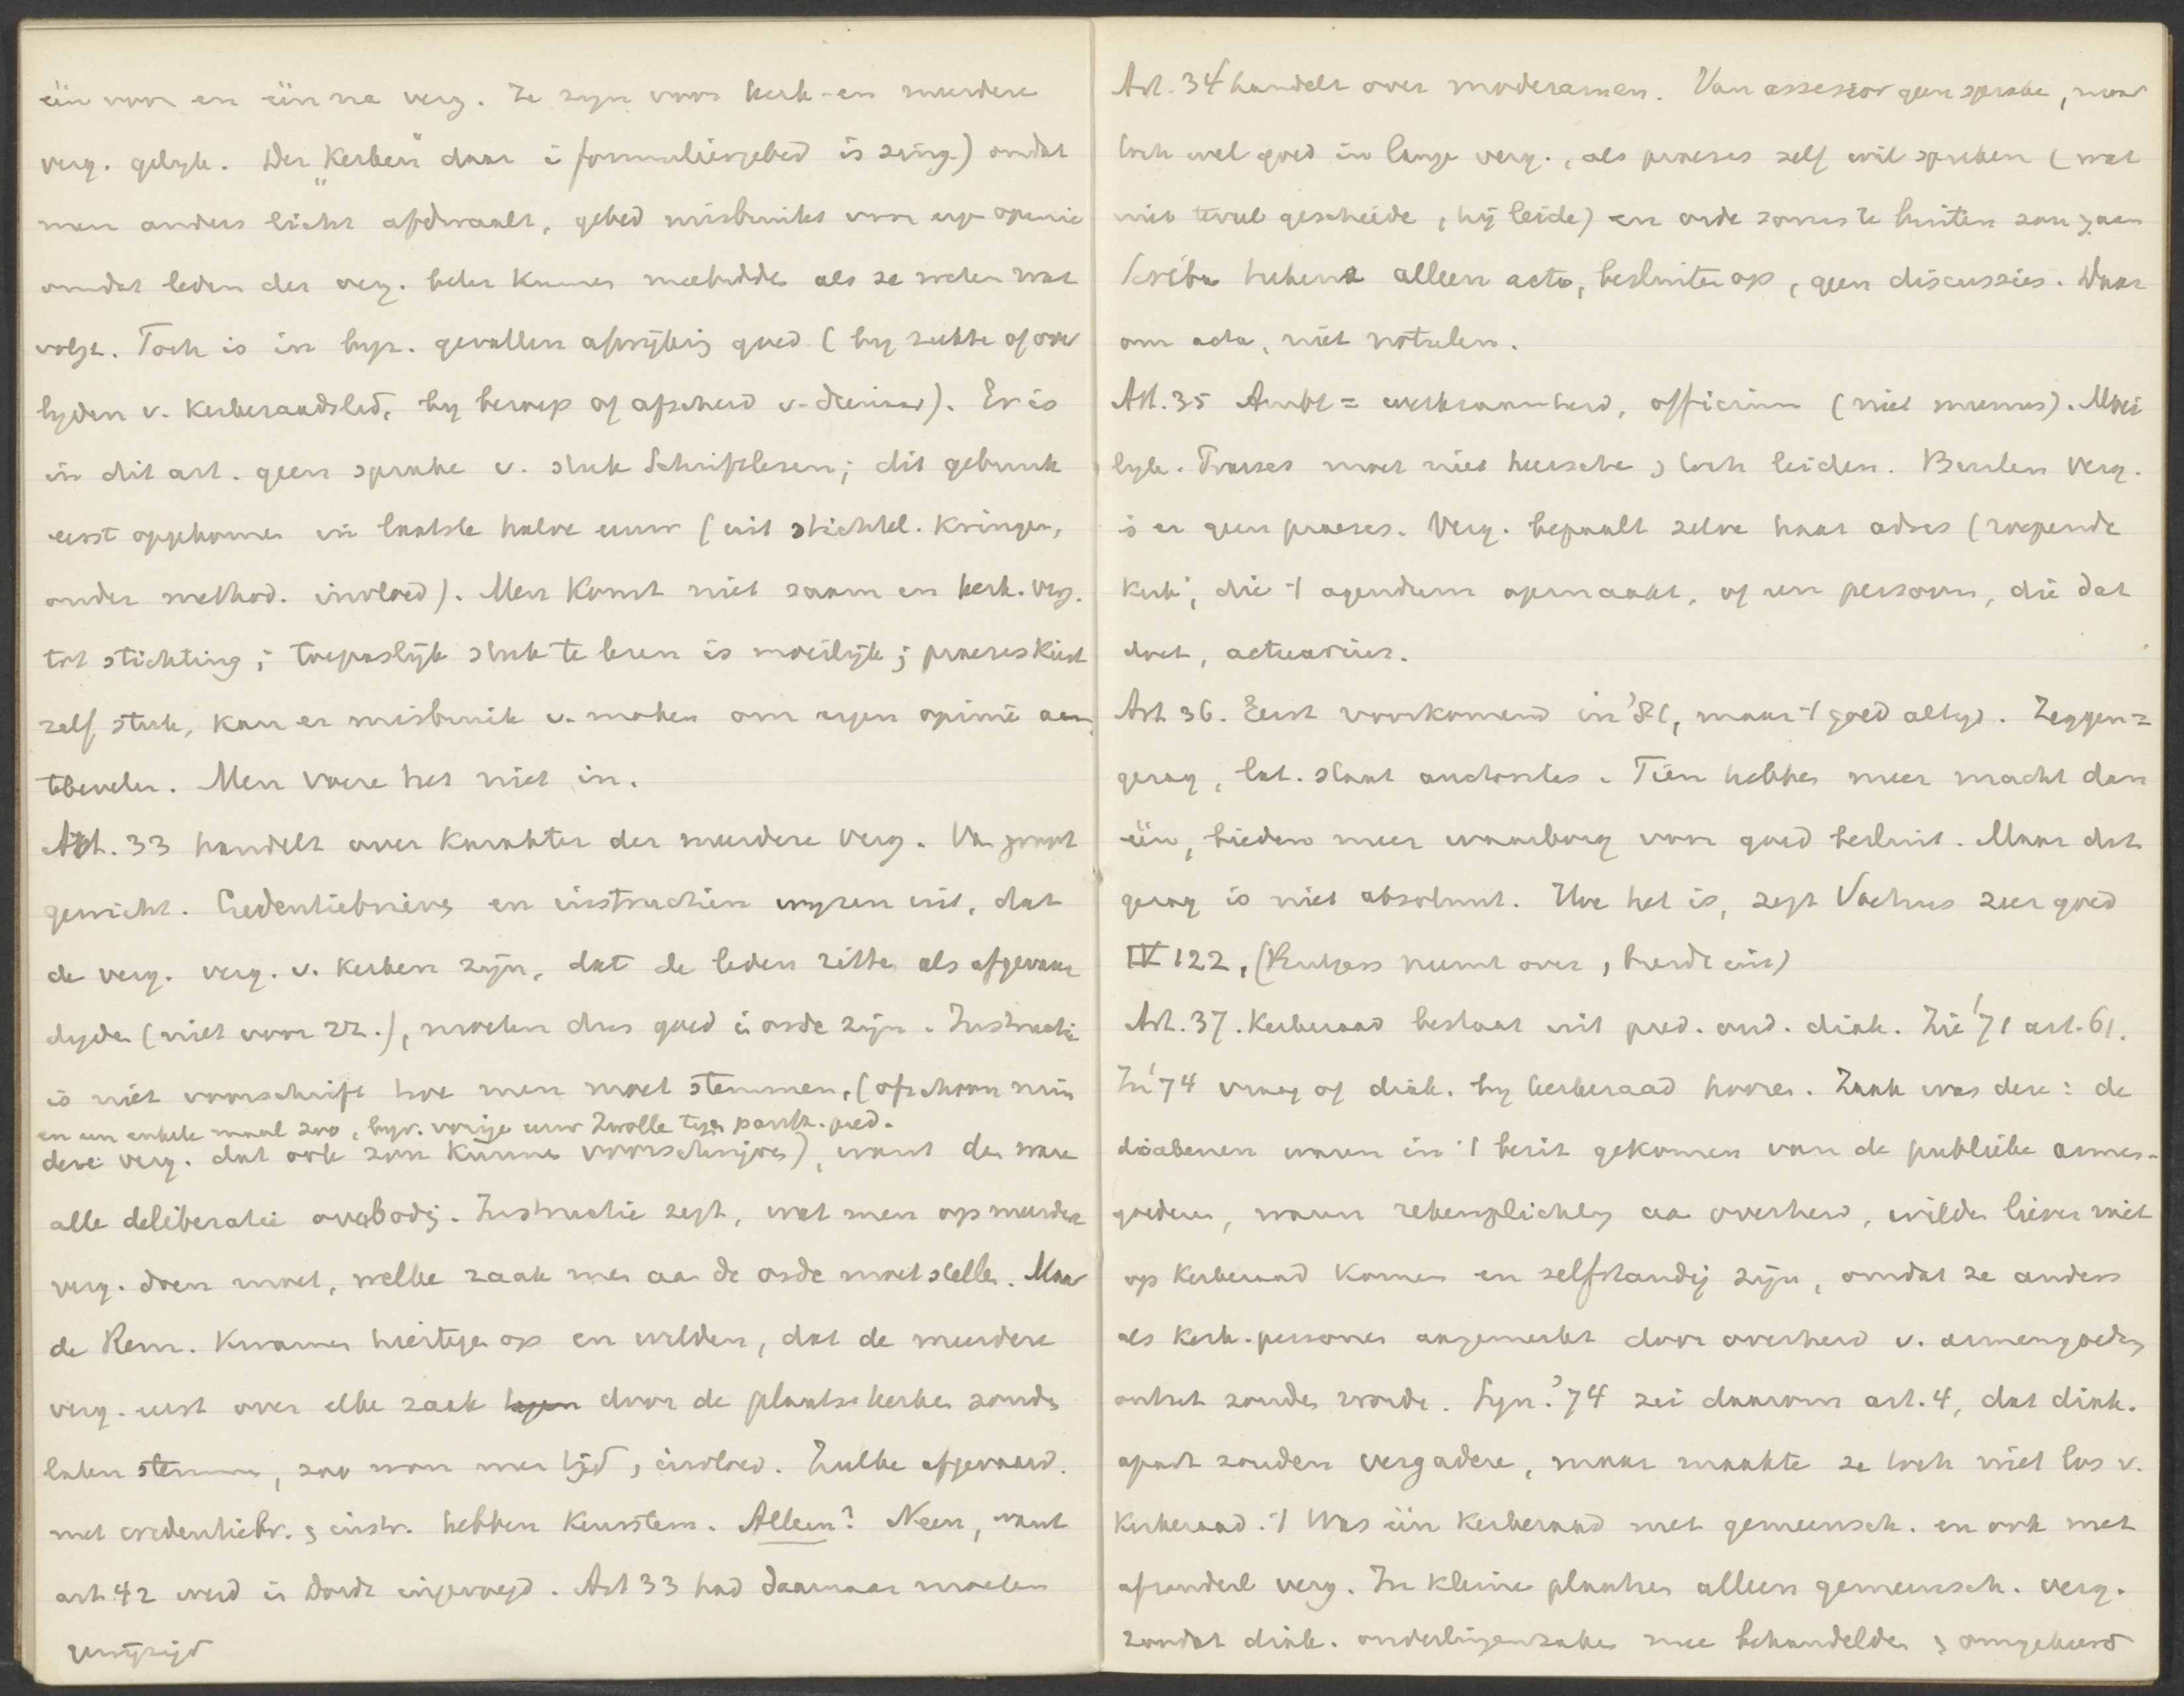 één voor en één na verg. Ze zyn voor kerk- en meerdere
verg. gelyk. Der "Kerken" daar i formuliergebed is zinnig) omdat
men anders licht afdwaalt, gebed misbruikt voor eige opinie
omdat leden der verg. beter kunnen meebidde als ze weten wat
volgt. Toch is in byz. gevallen afwijking goed (by ziekte of over
lyden v. Kerkeraadslid, by beroep of afscheid v. dienaar). Er is
in dit art. geen sprake v. stuk Schriftlezen; dit gebruik
eerst opgekomen in laatste halve eeuw (uit stichtel. Kringen,
onder method. invloed). Men Komt niet saam en kerk. verg.
tot stichting; toepaslijk stuk te lezen is moeilijk; praeses Kiest
zelf stuk, kan er misbruik v. maken om eigen opinie aan
tebevelen. Men voere het niet in.
Art. 33 handelt over Karakter der meerdere verg. Van groot
gewicht. Credentiebrieven en instructien wyzen uit, dat
de verg. verg. v. Kerken zijn, dat de leden zitte als afgevaar
digde (niet voor zz.), moeten dus goed i orde zijn. Instructie
is niet voorschrift hoe men moet stemmen, (ofschoon min
en een enkele maal zoo, byv. vorige eeuw Zwolle tegen pred.
dere verg. dat ook zou Kunne voorschrijve), want dan ware
alle deliberatie overbodig. Instructie zegt, wat men op meerdere
verg. doen moet, welke zaak men aa de orde moet stelle. Maar
de Rem. Kwamen hiertege op en wilden, dat de meerdere
verg. eerst over elke zaak door de plaatse kerke zoude
laten stemme, zoo won men tijd, invloed. Zulke afgevaard.
met credentiebr. & instr. hebben Keurstem. Alleen? Neen, want
art 42 werd i Dordt ingevoegd. Art 33 had daarnaar moeten
gewijzigd
Art. 34 handelt over moderamen. Van assessor geen sprake, maar
toch wel goed in lange verg., als praeses zelf wil spreken (wat
niet teveel geschiede, hij leide) en orde soms te buiten zou gaan
Scriba tekene alleen acta, besluite op, geen discussies. Daar
om acta, niet notulen.
Art. 35 Ambt = werkzaamheid, officium (niet munus). Moei
lyk. Praeses moet niet heersche, toch leiden. Buiten verg.
is er geen praeses. Verg. bepaalt zelve haar adres (roepende
Kerk, die 't agendum opmaakt, of een persoon, die dat
doet, actuarius.
Art 36. Eerst voorkomend in '81, maar 't gold altyd. Zeggen=
gezag, lat. staat auctoritas. Tien hebben meer macht dan
één, bieden meer waarborg voor goed besluit. Maar dat
gezag is niet absoluut. Hoe het is, zegt Voetius zeer goed
IV 122, (Rutgers neemt over, breidt uit)
Art. 37. Kerkeraad bestaat uit pred. oud. diak. Zie '71 art. 61.
In '74 vraag of diak. by kerkeraad hooren. Zaak was deze: de
diakenen waren in 't bezit gekomen van de publieke armen-
goederen, waren rekenplichtig aa overheid, wilde liever niet
op Kerkeraad Komen en zelfstandig zijn, omdat ze anders
als Kerk. personen aangemerkt door overheid v. armengoede
ontzet zoude worde. Syn. '74 zei daarom art. 4, dat diak.
apart zouden vergadere, maar maakte ze toch niet los v.
Kerkeraad. 't Was één Kerkeraad met gemeensch. en ook met
afzonderl verg. In kleine plaatse alleen gemeensch. verg.
zoodat diak. ouderlingenzaken mee behandelde & omgekeerd